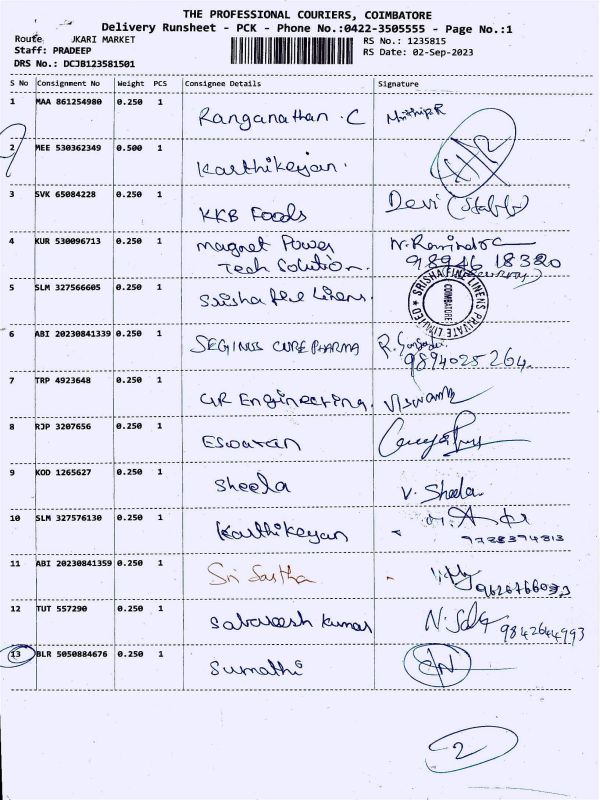 THE PROFESSIONAL COURIERS, COIMBATORE
Delivery Runsheet - PCK - Phone No.:0422-3505555 - Page No.:1
Route JKARI MARKET
RS No.: 1235815
Staff: PRADEEP
RS Date: 02-Sep-2023
DRS No.: DCJB123581501
S No Consignment No Weight PCS Consignee Details Signature
1 MAA 861254980 0.250 1 Ranganathan .C
2 MEE 530362349 0.500 1 Karthikeyan.
3 SVK 65084228 0.250 1 KKB Foods Devi (Staff)
4 KUR 530096713 0.250 1 Magnet Power
Tech Solution. 98946 18320
5 SLM 327566605 0.250 1 Srisha fine Linens. SRISHA FINE LINENS PRIVATE LIMITED COIMBATORE
6 ABI 20230841339 0.250 1 SEGINUS CUREPHARMA 9894025264.
7 TRP 4923648 0.250 1 GR Engineering. Viswam
8 RJP 3207656 0.250 1 Eswaran
9 KOD 1265627 0.250 1 Sheela V. Sheela.
10 SLM 327576130 0.250 1 Karthikeyan
11 ABI 20230841359 0.250 1 Sri Sastha
12 TUT 557290 0.250 1 Sabareesh kumar 9842644993
13 BLR 5050884676 0.250 1 Sumathi
2